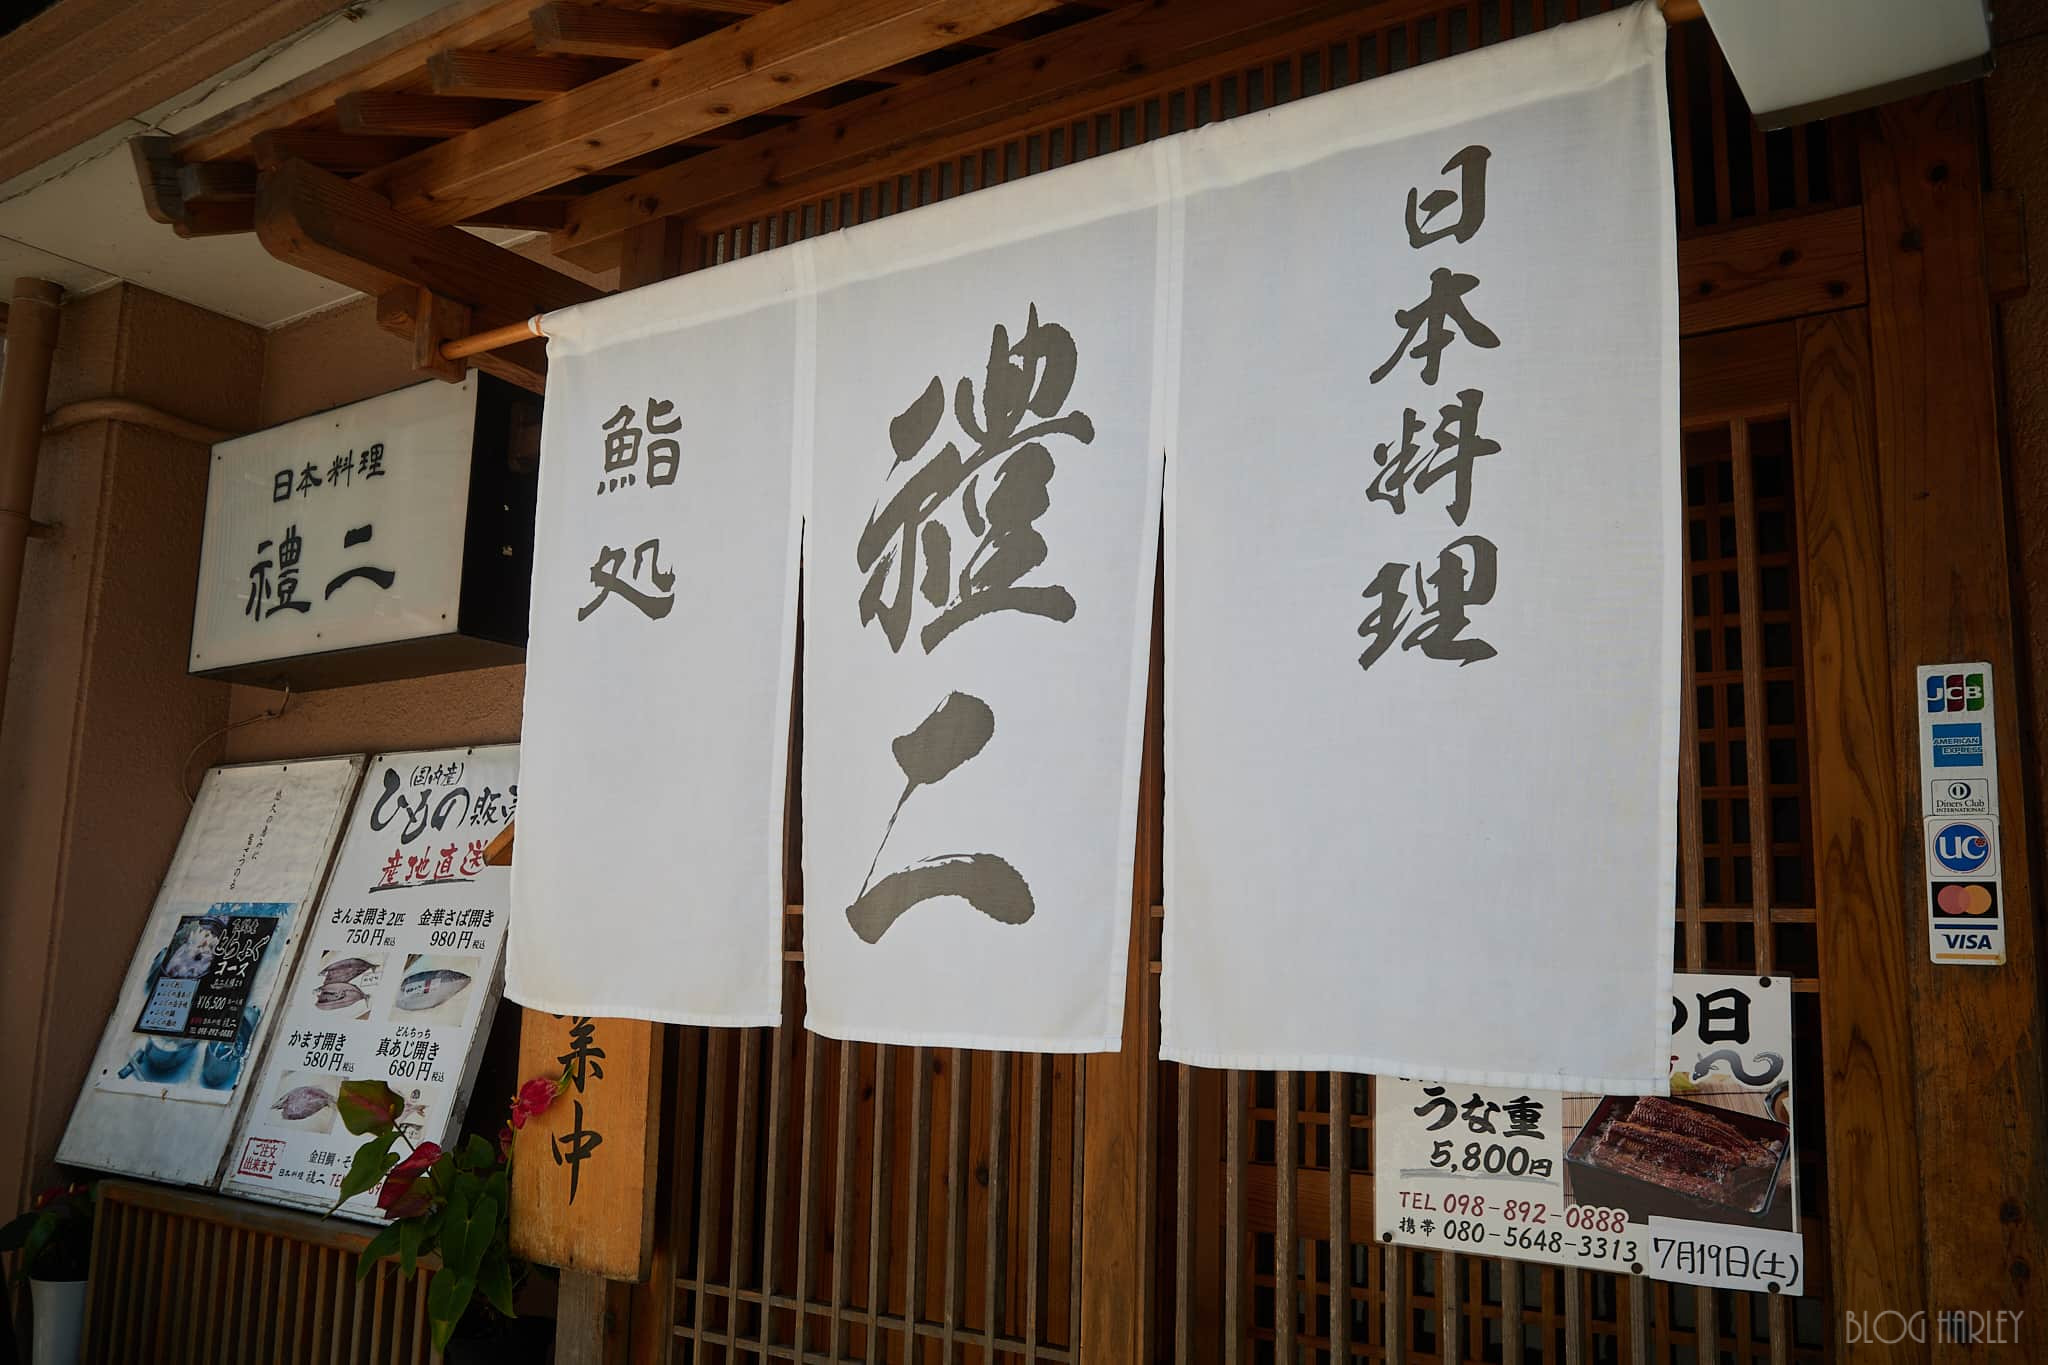 日本料理
禮二
鮨処
日本料理
禮二
(国内産)
ひもの販売
産地直送
さんま開き2匹
750円税込
金華さば開き
980円税込
かます開き
580円税込
どんちっち
真あじ開き
680円税込
ご注文
出来ます
金目鯛・そ
日本料理 禮二 TEL
とらふぐ
コース
¥16,500
禮二
TEL 098-892-0888
業中
の日
うな重
5,800円
TEL 098-892-0888
携帯 080-5648-3313
7月19日(土)
JCB
AMERICAN EXPRESS
Diners Club
INTERNATIONAL
UC
VISA
BLOG HARLEY